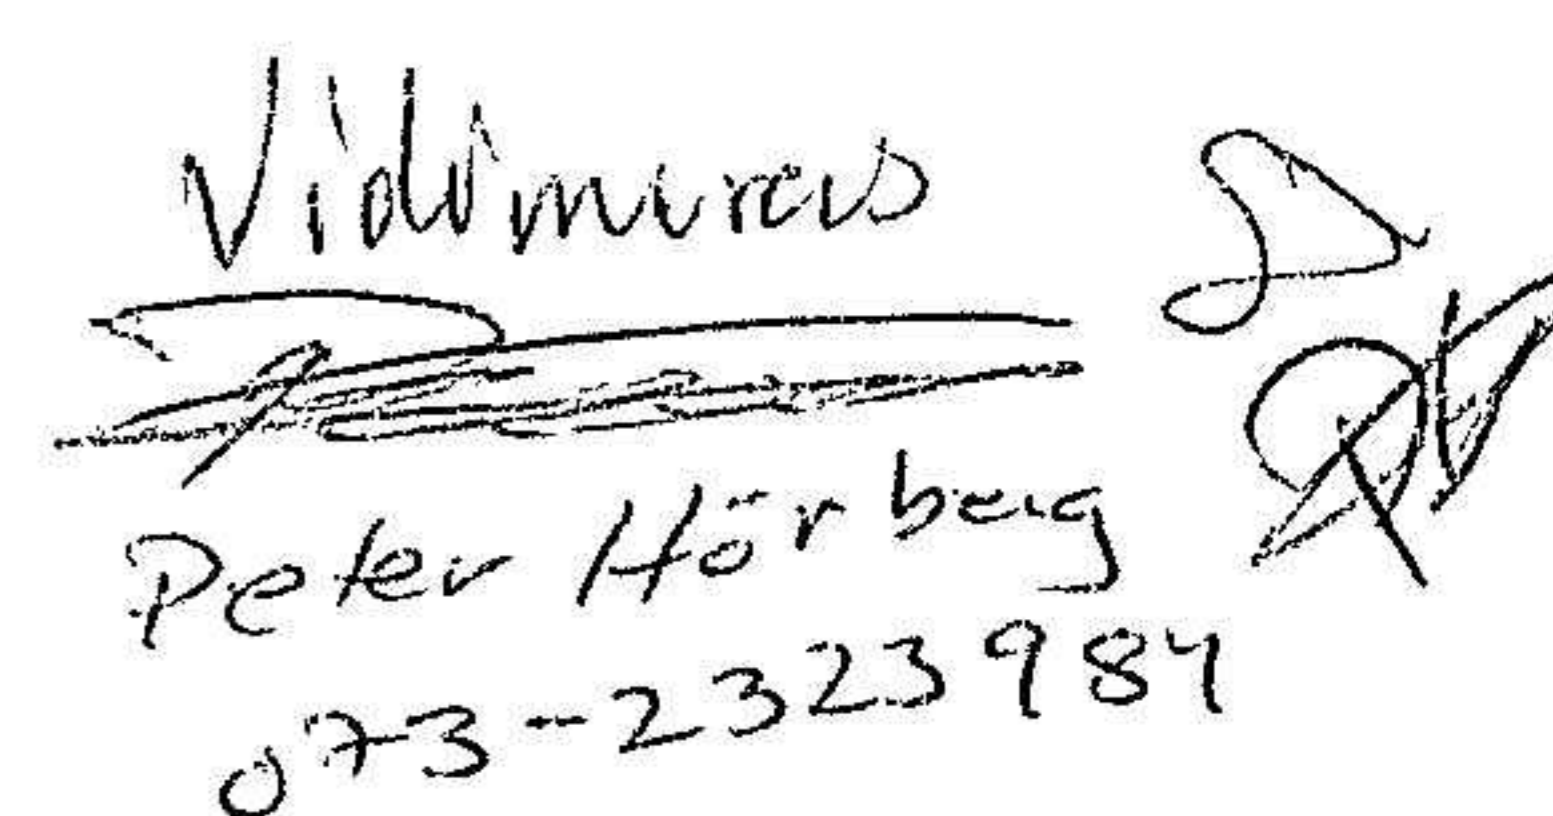 Vidimeras
Peter Hörberg
073-2323984